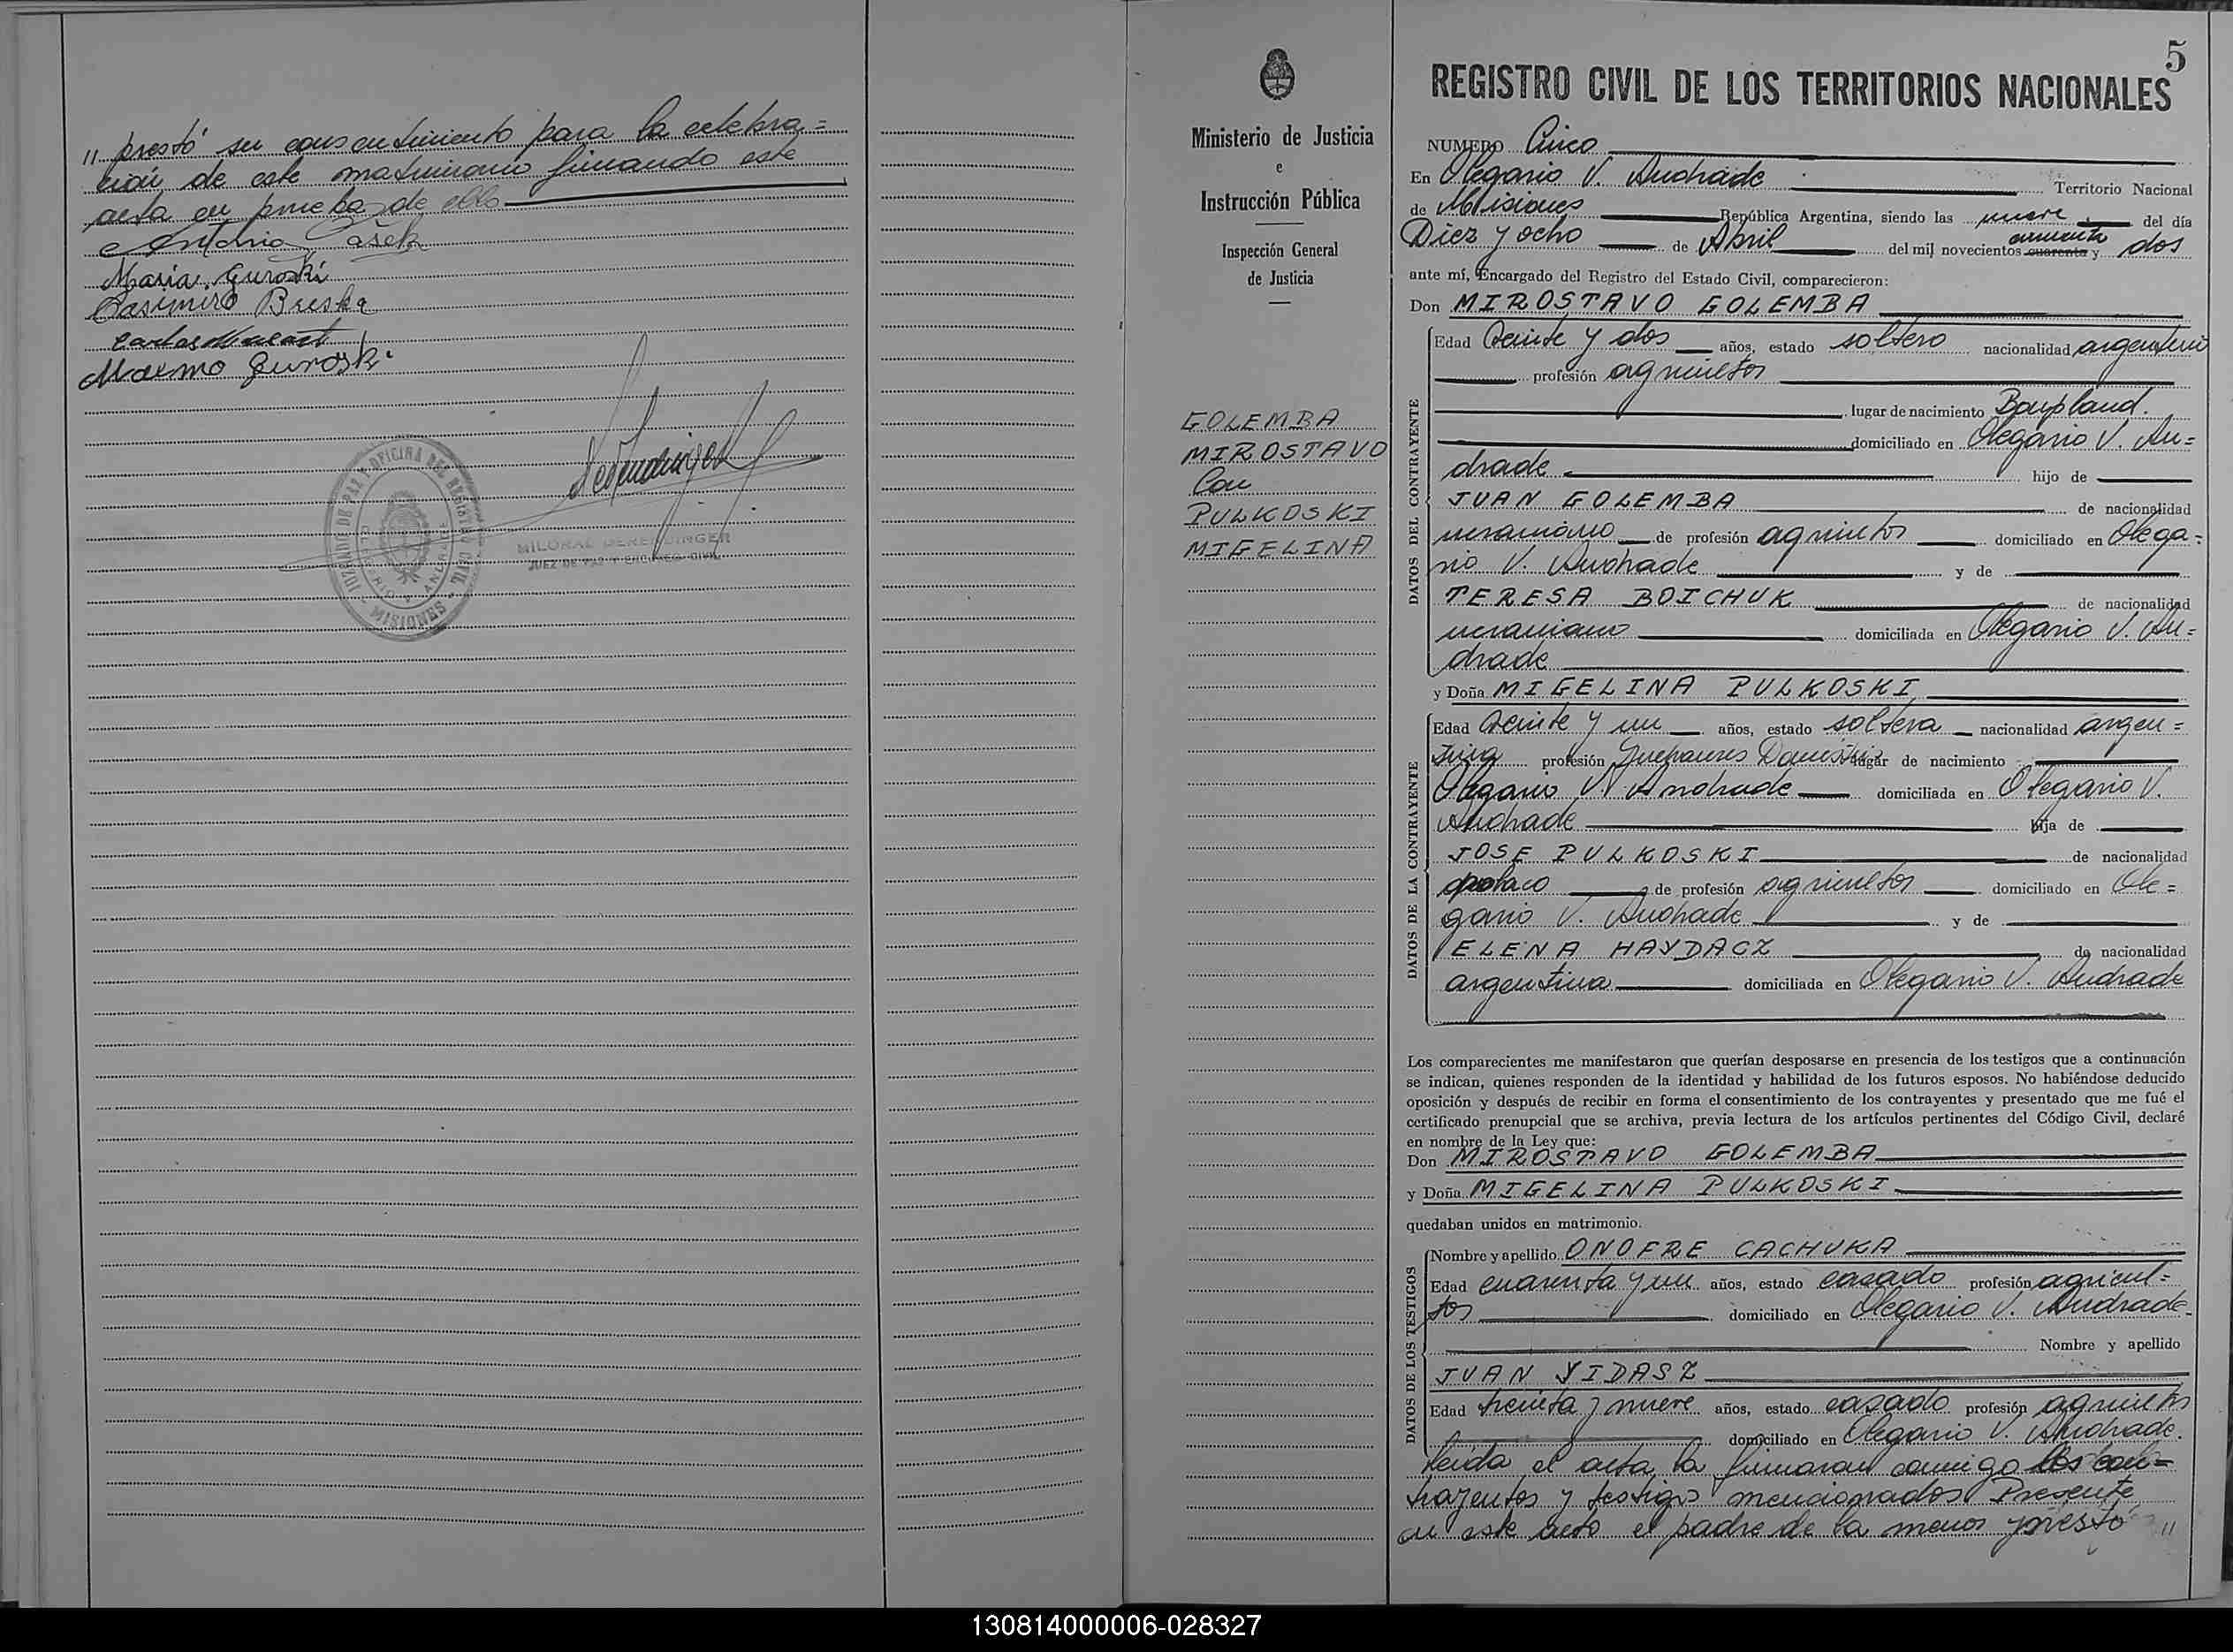 " prestó su consentimiento para la celebra=
ción de este matrimonio firmando este
acta en prueba de ello
Antonio Casek
Maria Guroski
Casimiro Breska
Carlos
Maximo Guroski
JUZGADO DE PAZ Y OFICINA DEL REGISTRO CIVIL
OLEGARIO V. ANDRADE
MISIONES
MILORAD DERENDINGER
JUEZ DE PAZ Y ENC. REG. CIVIL
Ministerio de Justicia
e
Instrucción Pública
Inspección General
de Justicia
GOLEMBA
MIROSTAVO
Con
PULKOSKI
MIGELINA
5
REGISTRO CIVIL DE LOS TERRITORIOS NACIONALES
NUMERO Cinco
En Olegario V. Andrade Territorio Nacional
de Misiones República Argentina, siendo las nueve del día
Diez y ocho de Abril del mil novecientos cuarenta cincuenta y dos
ante mí, Encargado del Registro del Estado Civil, comparecieron:
Don MIROSTAVO GOLEMBA
DATOS DEL CONTRAYENTE
Edad Veinte y dos años, estado soltero nacionalidad argentino
profesión agricultor
lugar de nacimiento Bonpland.
domiciliado en Olegario V. An=
drade hijo de
JUAN GOLEMBA de nacionalidad
ucraniano de profesión agricultor domiciliado en Olega=
rio V. Andrade y de
TERESA BOICHUK de nacionalidad
ucraniano domiciliada en Olegario V. An=
drade
y Doña MIGELINA PULKOSKI
DATOS DE LA CONTRAYENTE
Edad Veinte y un años, estado soltera nacionalidad argen=
tina profesión Quehaceres Domésticos lugar de nacimiento
Olegario V. Andrade domiciliada en Olegario V.
Andrade hija de
JOSE PULKOSKI de nacionalidad
polaco de profesión agricultor domiciliado en Ole=
gario V. Andrade y de
ELENA HAYDACZ de nacionalidad
argentina domiciliada en Olegario V. Andrade
Los comparecientes me manifestaron que querían desposarse en presencia de los testigos que a continuación
se indican, quienes responden de la identidad y habilidad de los futuros esposos. No habiéndose deducido
oposición y después de recibir en forma el consentimiento de los contrayentes y presentado que me fué el
certificado prenupcial que se archiva, previa lectura de los artículos pertinentes del Código Civil, declaré
en nombre de la Ley que:
Don MIROSTAVO GOLEMBA
y Doña MIGELINA PULKOSKI
quedaban unidos en matrimonio.
DATOS DE LOS TESTIGOS
Nombre y apellido ONOFRE CACHUKA
Edad cuarenta y un años, estado casado profesión agricul=
tor domiciliado en Olegario V. Andrade
Nombre y apellido
JUAN YIDASZ
Edad treinta y nueve años, estado casado profesión agricultor
domiciliado en Olegario V. Andrade.
Leida el acta la firmaron conmigo los con=
trayentes y testigos mencionados Presente
en este acto el padre de la menor y prestó "
130814000006-028327